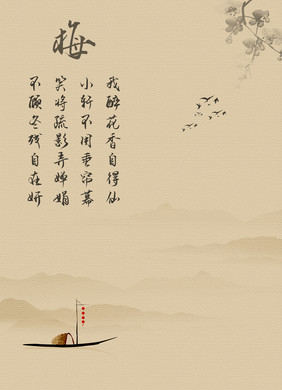 梅
我醉花香自得仙
小轩不用垂帘幕
笑将疏影弄婵娟
不顾冬残自在妍